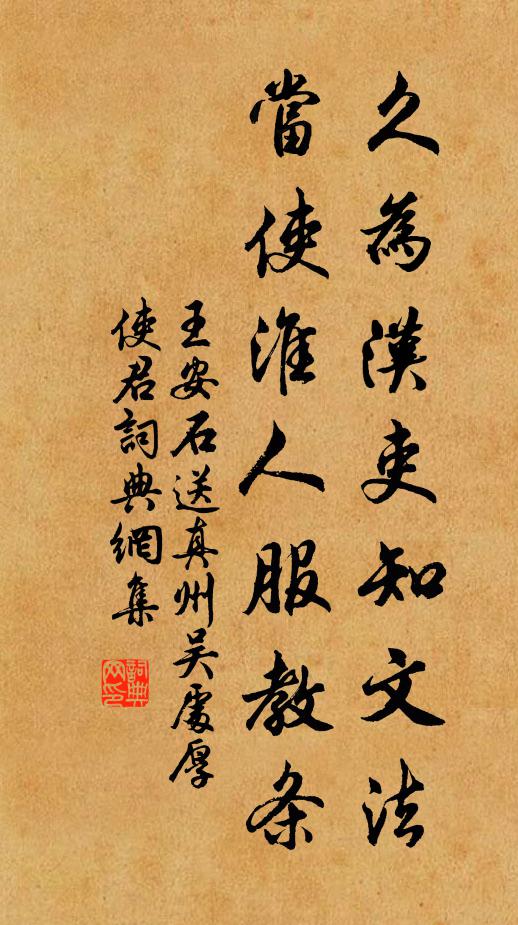 久為漢吏知文法
當使淮人服教条
王安石送真州吴處厚
使君詞典網集
詞典网印